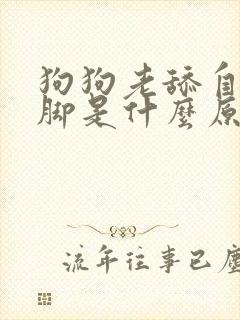 狗狗老舔自
脚是什麼原
流年往事已塵